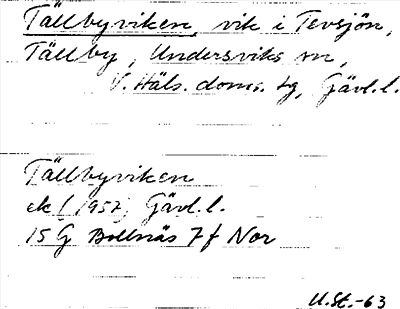 Tällbyviken, vik i Tevsjön,
Tällby, Undersviks sn,
V. Häls. doms. tg, Gävl. l.
Tällbyviken
ek (1957) Gävl. l.
15 G Bollnäs 7f Nor
U.St.-63